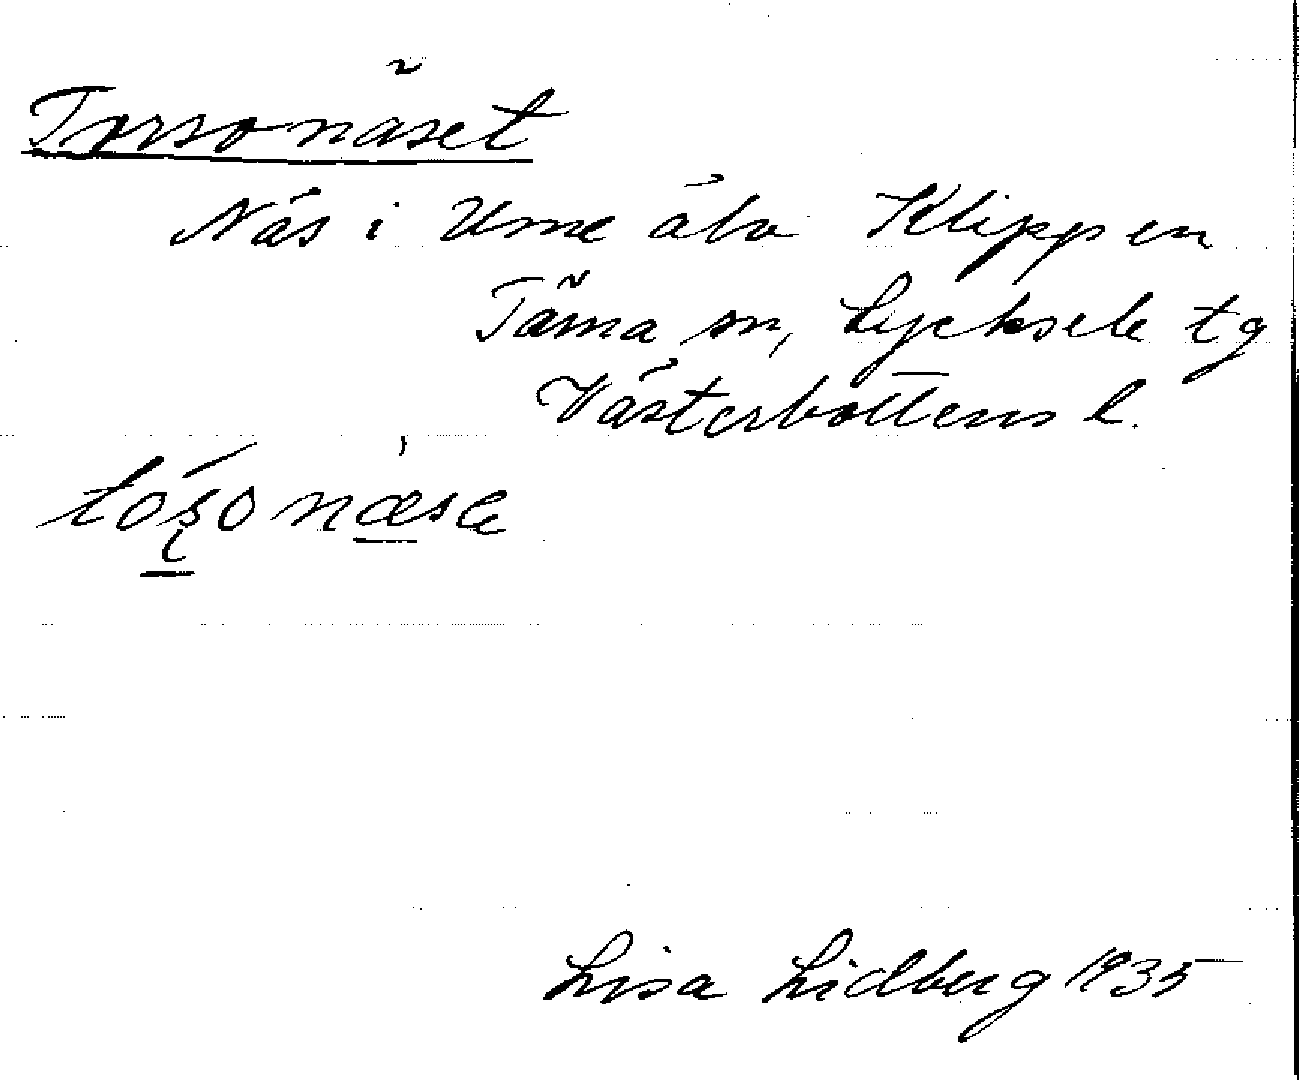 Torsonäset
Näs i Ume älv Klippen
Tärna sn, Lycksele tg
Västerbottens l.
Lisa Lidberg 1935